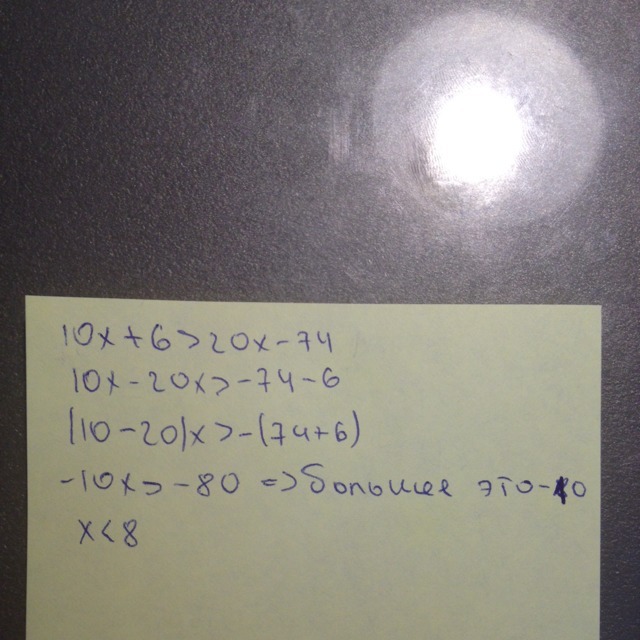 10x+6>20x-74
10x-20x>-74-6
(10-20)x>-(74+6)
-10x>-80 => большее это-10
x<8